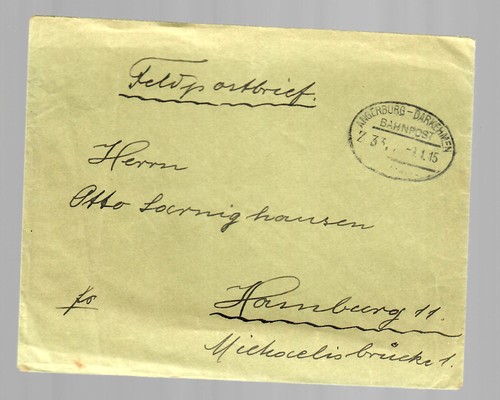 Feldpostbrief.
ANGERBURG-DARKEHMEN
BAHNPOST
Z 33. 1.15
Herrn
Otto Saernighausen
fr
Hamburg 11.
Michaelisbrücke 1.